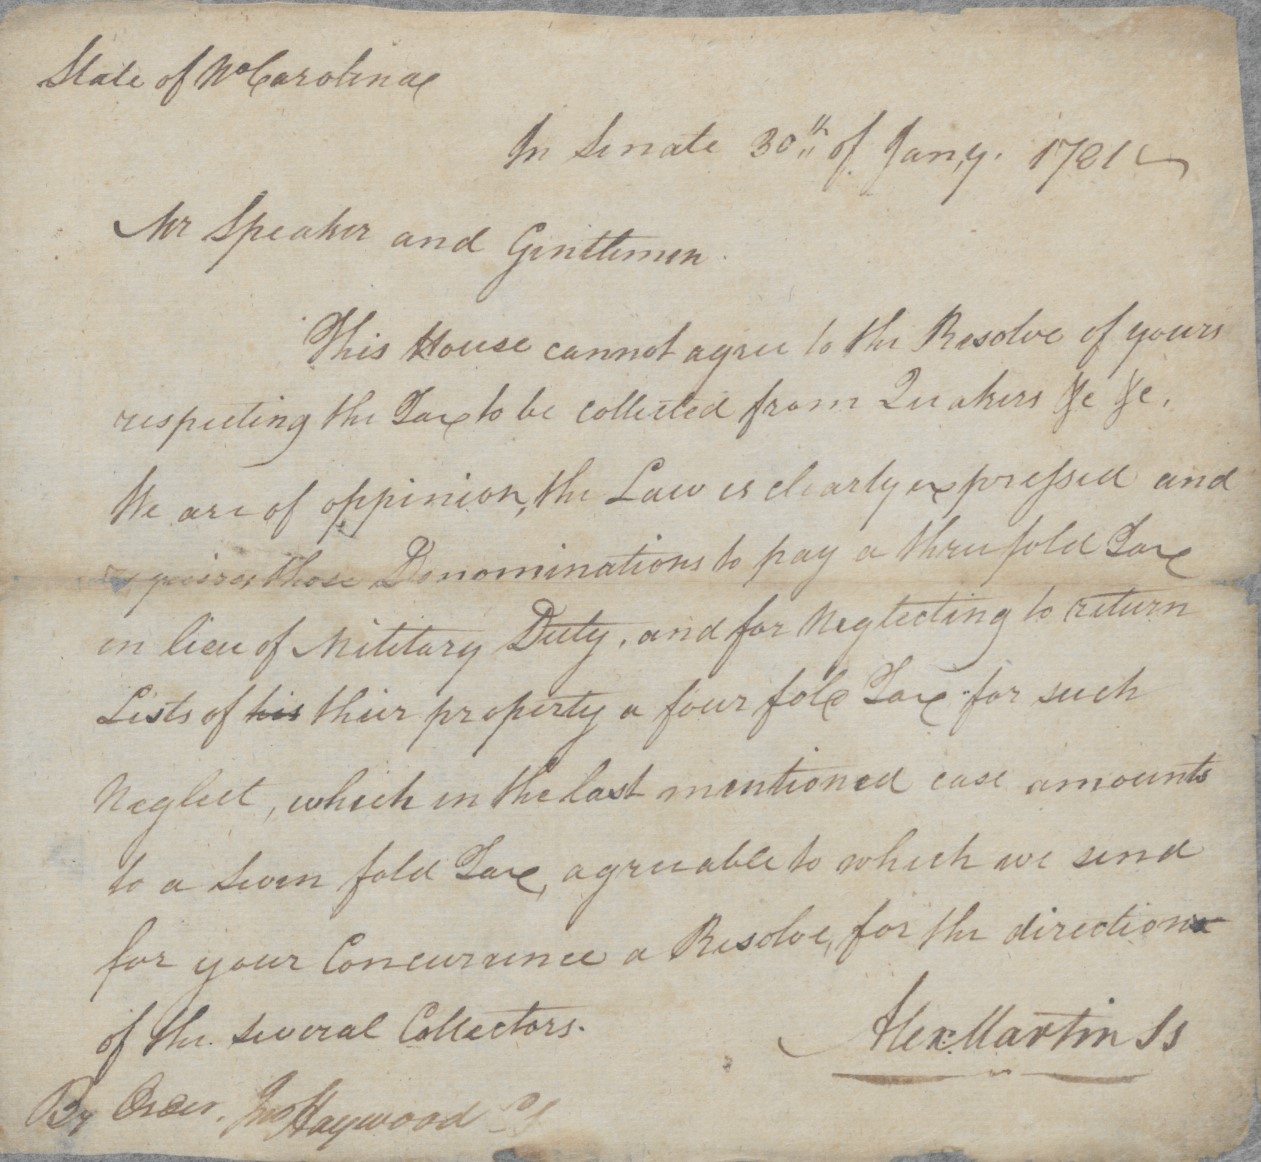 State of No Carolina
In Senate 30th of Jany. 1781
Mr Speaker and Gentlemen.
This House cannot agree to the Resolve of yours
respecting the Tax to be collected from Quakers &c &c.
We are of oppinion, the Law is clearly expressed and
requires those Denominations to pay a threefold Tax
in lieu of Military Duty, and for Neglecting to return
Lists of his their property a four fold Tax for such
Neglect, which in the last mentioned case amounts
to a Seven fold Tax, agreeable to which we send
for your Concurrence a Resolve, for the direction
of the several Collectors.
Alex: Martin SS
By Order. Jno Haywood CS